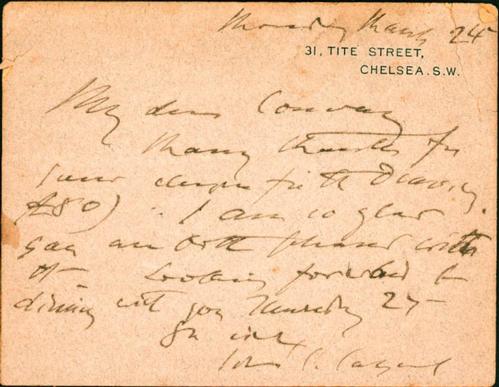 Thursday March 24
31, TITE STREET,
CHELSEA. S.W.
My dear Conway
Many thanks for
your cheque for the Drawing
£80) I am so glad
you are both pleased with
it - Looking forward to
dining with you Thursday
John S. Sargent